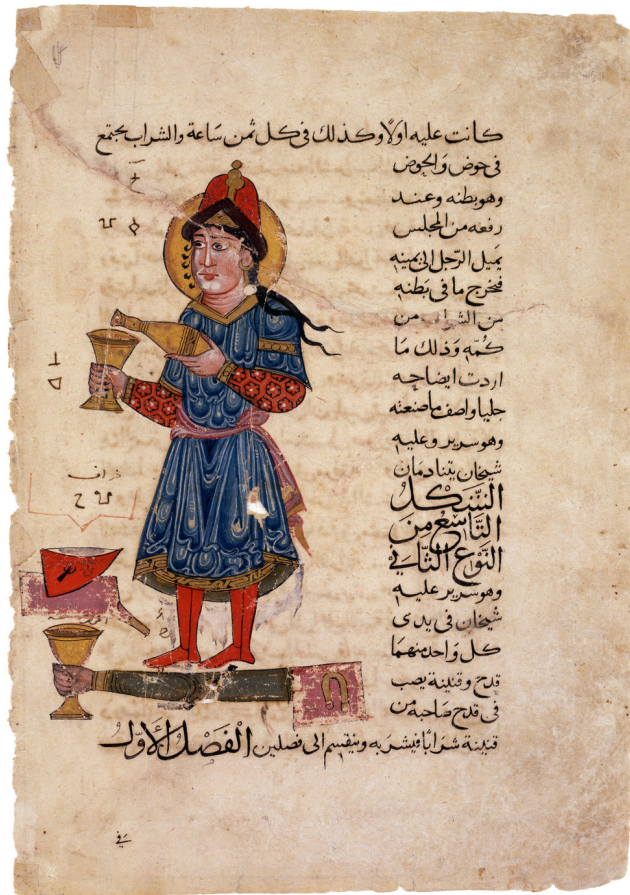 كانت عليه اولًا وكذلك فى كل ثمن ساعة والشراب يجتمع
فى حوض والحوض
وهو بطنه وعند
رفعه من المجلس
يميل الرجل الى يمينه
فيخرج ما فى بطنه
من الشراب من
كمّه وَذلك مَا
اردت ايضاحه
جليا واصف ما صنعته
وهو سرير وعليه
شيخان يتنادمان
الشكل
التاسع من
النوع الثانى
وهو سرير عليه
شيخان فى يدى
كل وَاحد منهمَا
قدح وقنينة يصب
فى قدح صَاحبه من
قنينة شرابًا فيشربه وينقسم الى فصلين الْفصْل الْأوّل
فى